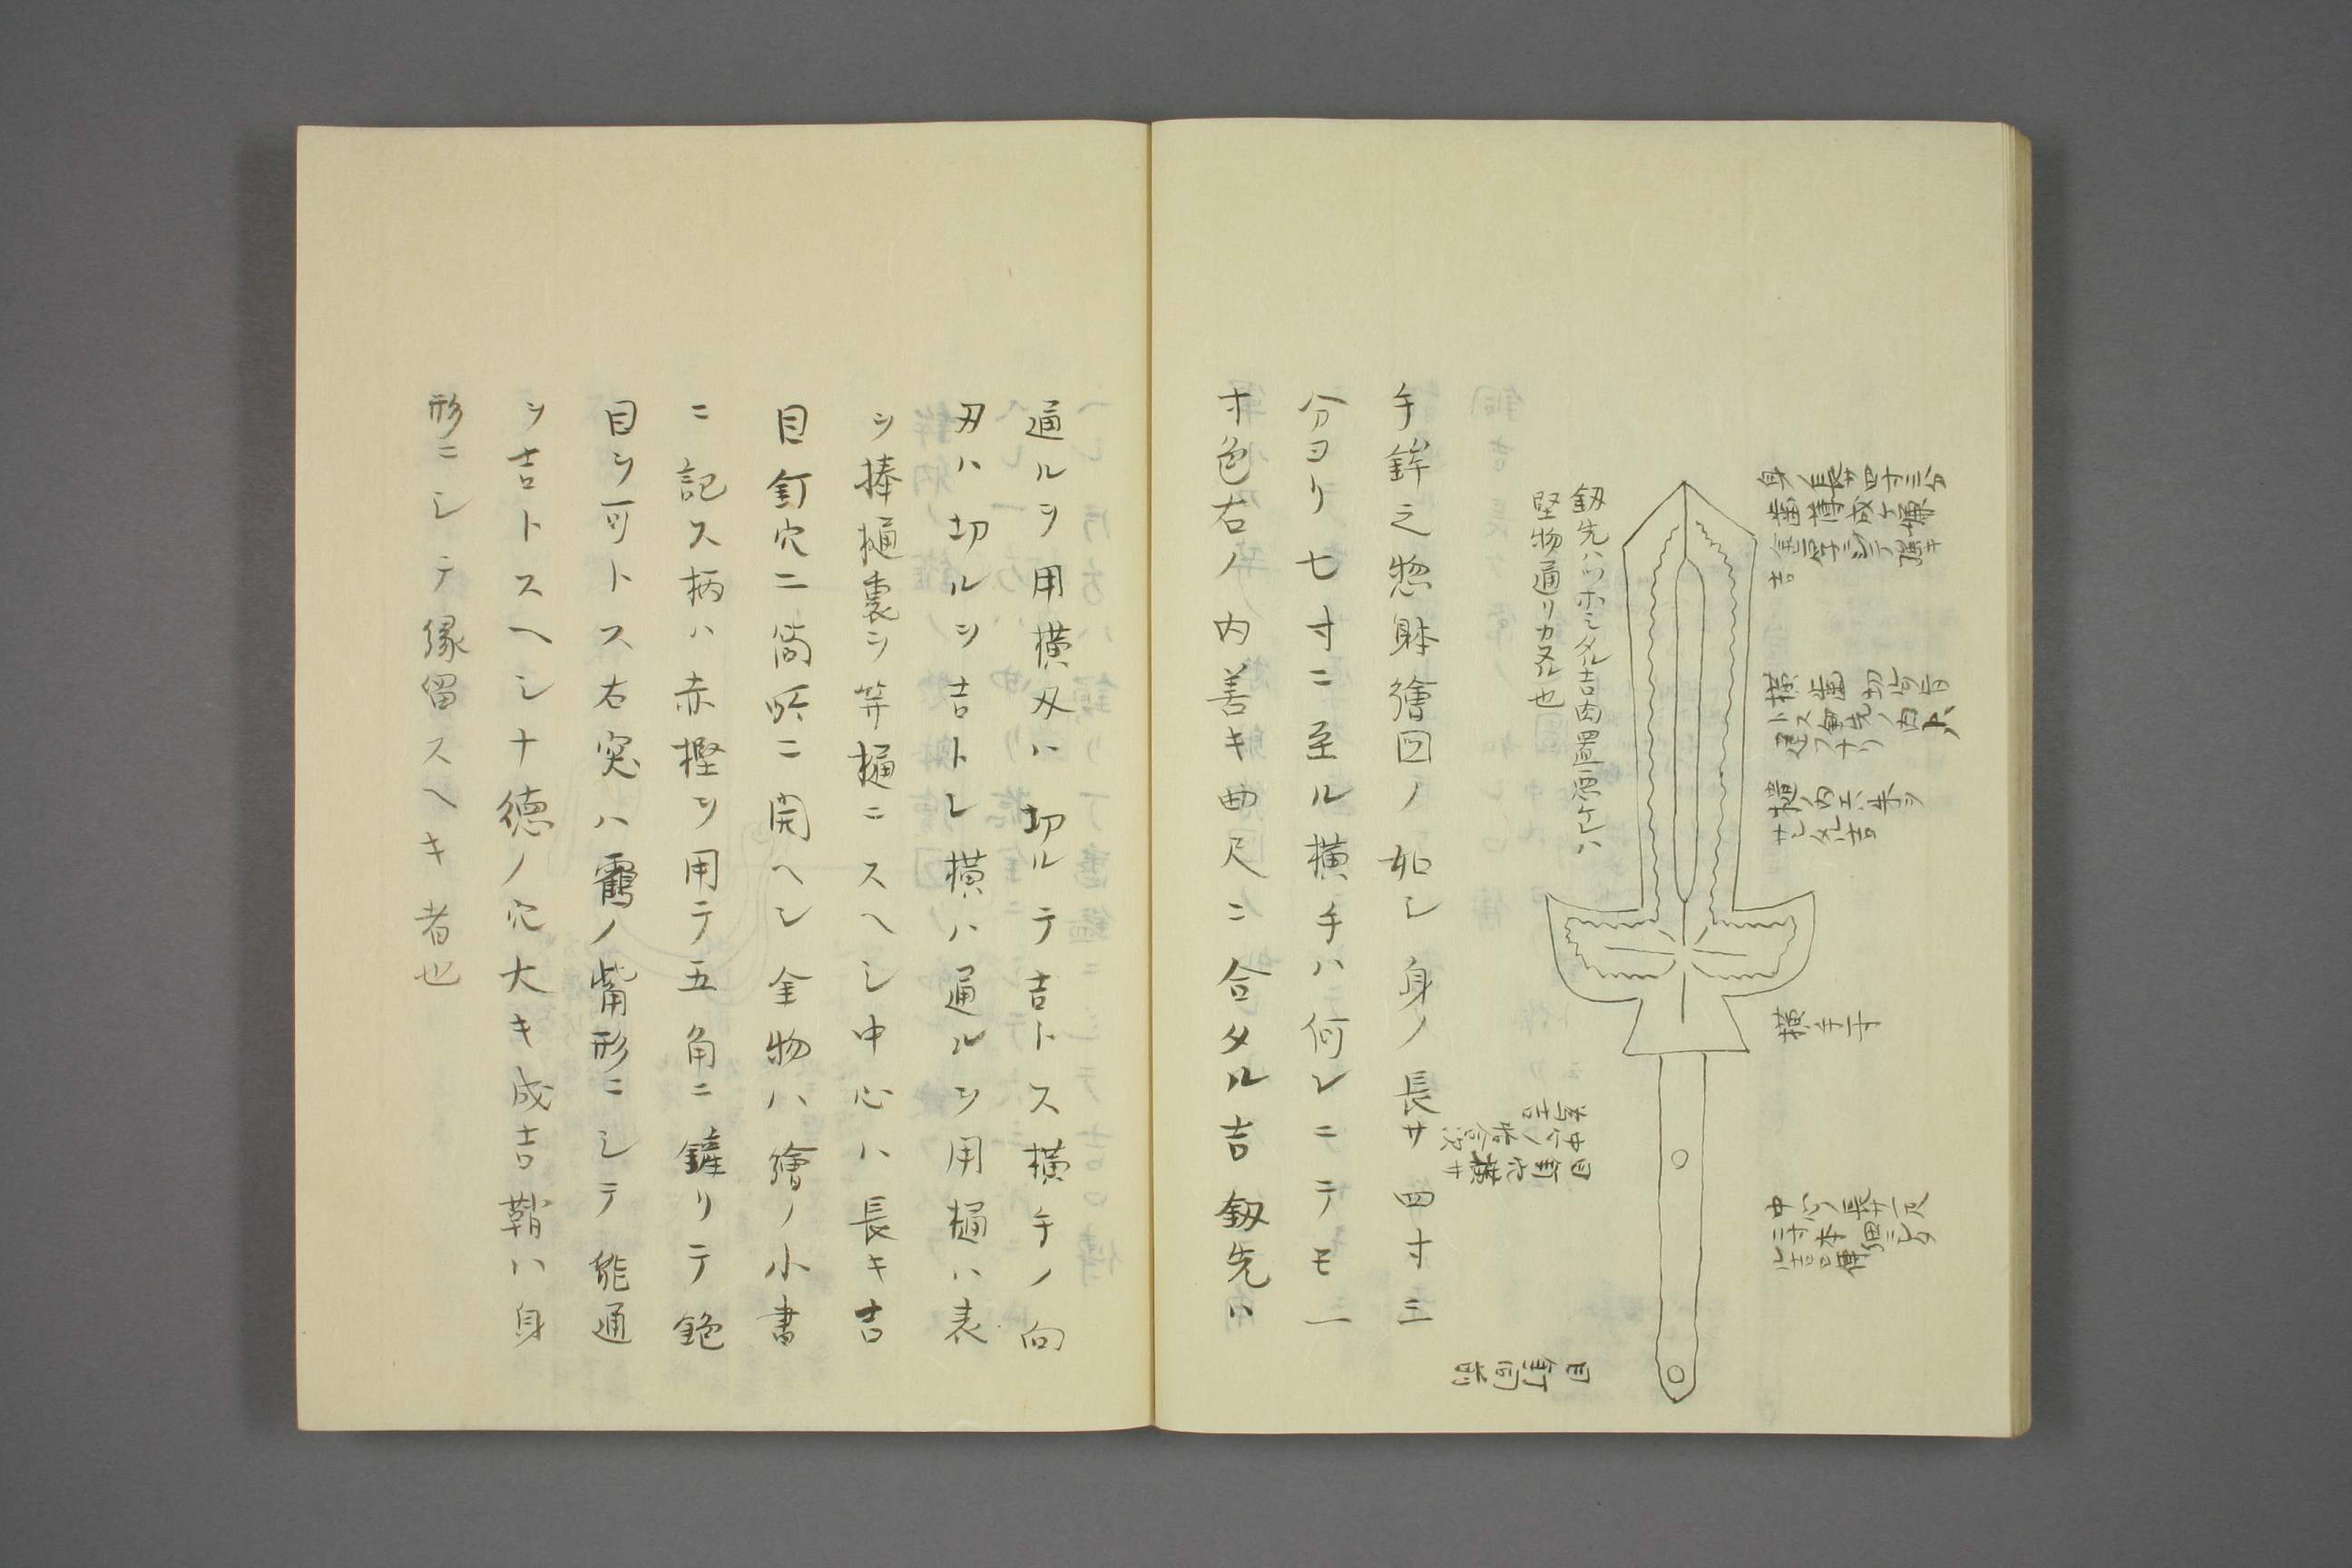 身ノ長サ四寸三分
横手一寸
中心ノ長サ一尺
釼先ハツホミタル吉肉置悪ケレハ
堅物通リカヌル也
目釘穴
目釘同前
手鉾之惣躰繪図ノ如シ身ノ長サ四寸三
分ヨリ七寸ニ至ル横手ハ何レニテモ一
寸色右ノ内善キ曲尺ニ合タル吉釼先ハ
通ルヲ用横刄ハ切ルテ吉トス横手ノ向
刄ハ切ルヲ吉トレ横ハ通ルヲ用樋ハ表
ヲ捧樋裏ヲ笄樋ニスヘシ中心ハ長キ吉
目釘穴二箇所ニ開ヘシ金物ハ繪ノ小書
ニ記ス柄ハ赤樫ヲ用テ五角ニ鏟リテ鉋
目ヲ可トス右突ハ靏ノ觜形ニシテ能通
ヲ吉トスヘシナ徳ノ穴大キ成吉鞘ハ身
形ニシテ縁留スヘキ者也